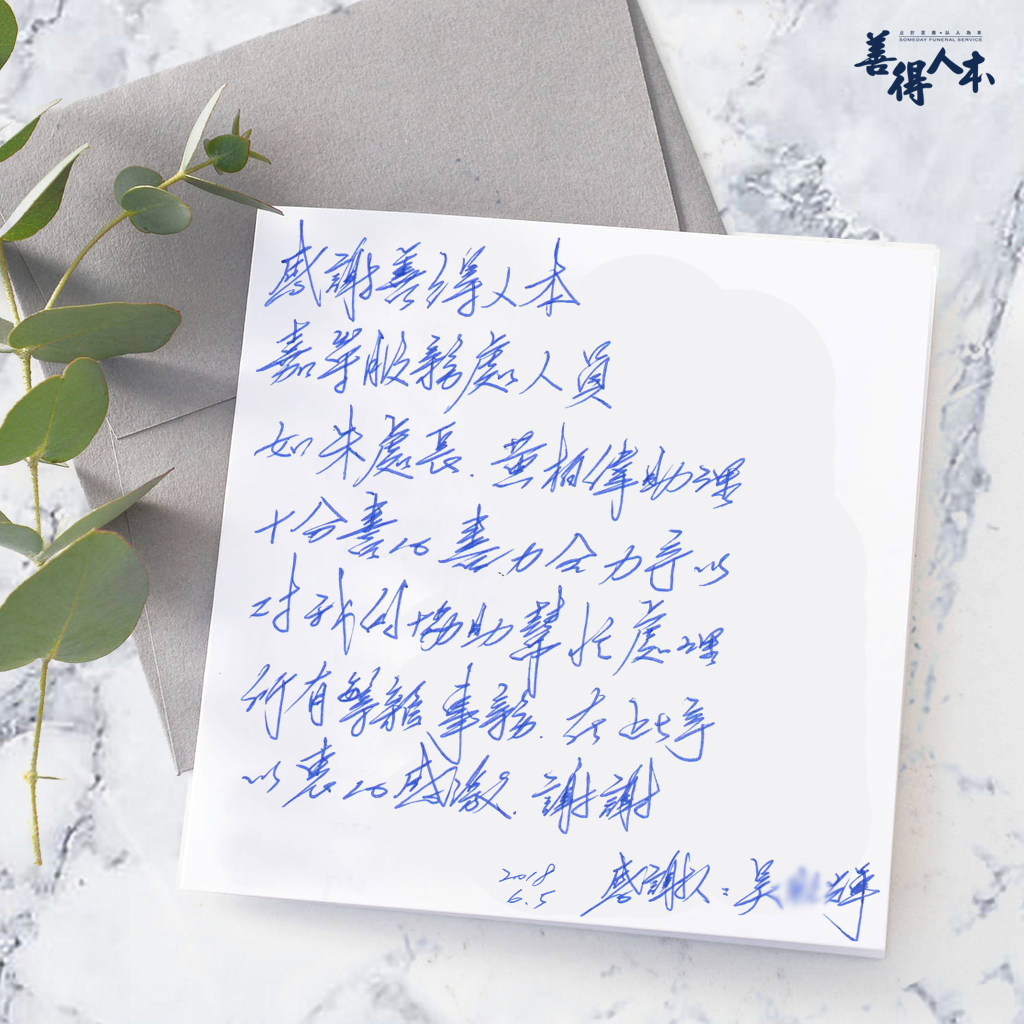 止於至善•以人為本
SOMEDAY FUNERAL SERVICE
善得人本
感謝善得人本
嘉義服務處人員
如朱處長、黃柏偉助理
十分善心盡力全力予以
對我們協助幫忙處理
所有繁雜事務.在此予
以表心感激.謝謝
2018
6.5
感謝人:吳 輝